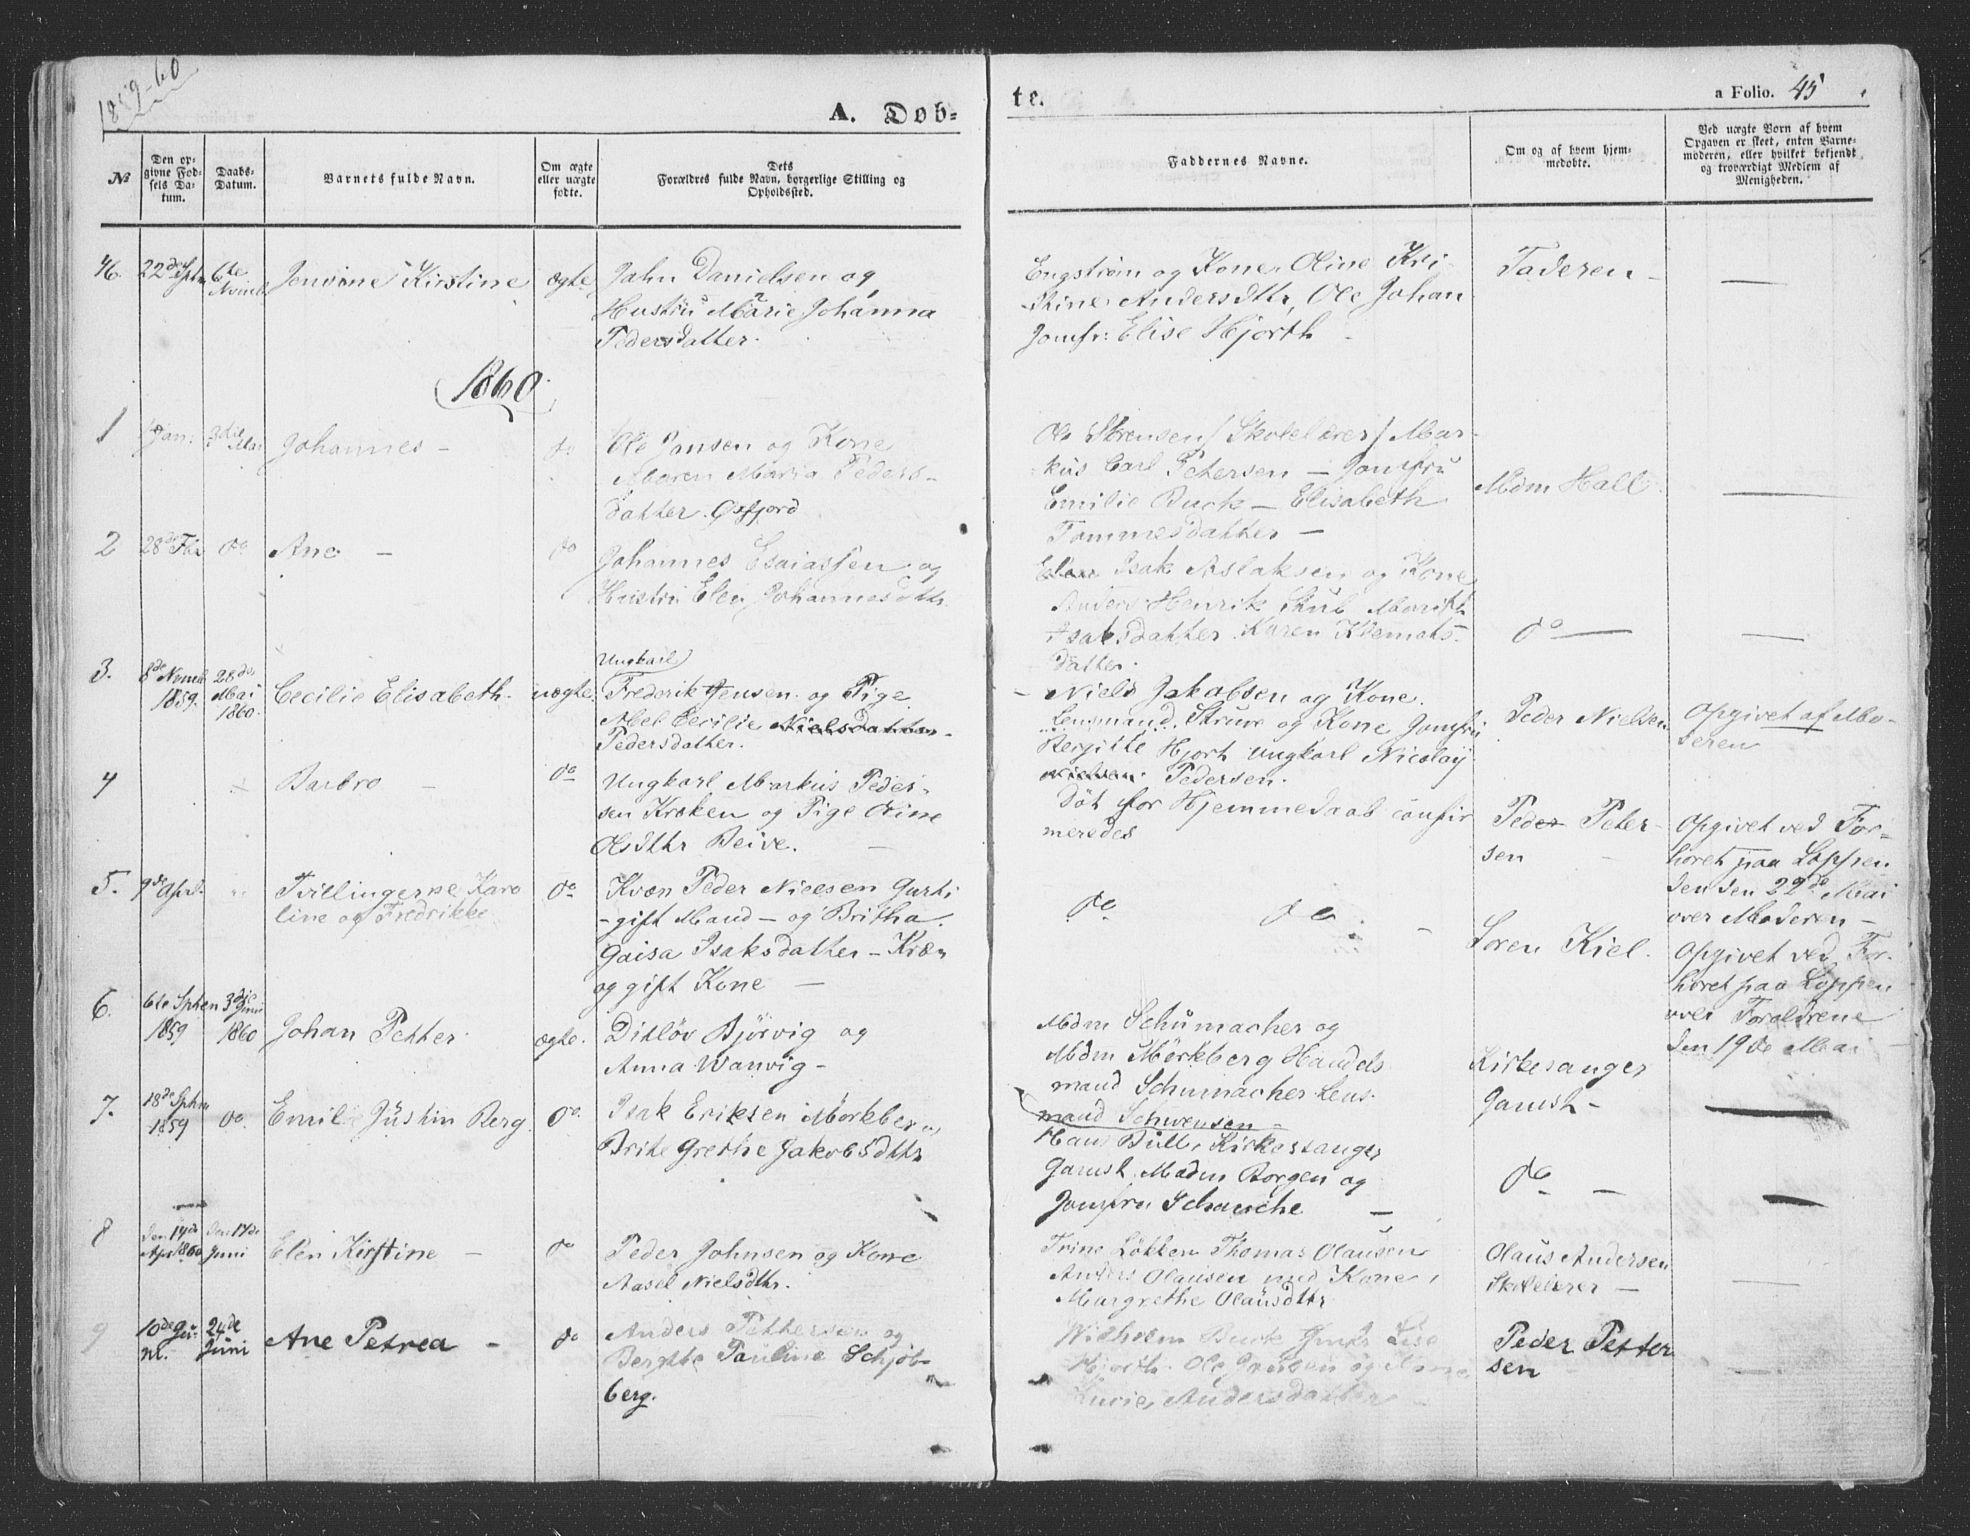 1859-60
A. Døb-
te.
a Folio. 45
No
Den op-
givne Fød-
sels Da-
tum.
Daabs-
Datum.
Barnets fulde Navn.
Om ægte
eller uægte
fødte.
Dets
Forældres fulde Navn, borgerlige Stilling og
Opholdssted.
Faddernes Navne.
Om og af hvem hjem-
medøbte.
Ved uægte Born af hvem
Opgaven er skeet, enten Barne-
moderen, eller hvilket bekjendt
og troværdigt Medlem af
Menigheden.
46. 22de Septr 6te Kirstine ægte
Jahn Danielsen og
Hustrü Marie Johanna
Pedersdatter.
Engstrøm og Kone, Oline Kri
stine Andersdtr, Ole Johan
Jomfr: Elise Hjorth -
Faderen -
1860.
1 Jan: 3die Mai Johannes - do
Ole Jansen og Kone
Maren Maria Peders-
datter. Øxfjord
Ole Sørensen / Skolelærer / Mar-
kus Carl Petersen - Jomfrü
Emilie Buck - Elisabeth
Tommesdatter -
Mdm Hall
2 28de Fbr do Ane - do
Johannes Esaiassen og
Hustrü Elen Johannesdttr
Elen Isak Aslaksen og Kone
Anders Henrik Skub Marith
Isaksdatter. Karen Klemets-
datter.
do
3. 8de Novmb 1859. 28de Mai 1860. Cecilie Elisabeth. uægte.
Ungkarl
Frederik Jensen og Pige
Abel Cecilie Nielsdatter
Pedersdatter.
Niels Jakobsen og Kone.
Lensmand Strüve og Kone Jomfrü
Bergitte Hjort ungkarl Nicolay
Nielsen. Pedersen.
Peder Nielsen
Opgivet af Mo-
deren
4 Barbro - do
Ungkarl Markus Peder-
sen Kroken og Pige Oline
Olsdttr Beive. -
Döt før Hjemmedaab confir
meredes
Peder Peter-
sen -
Opgivet ved For-
høret paa Loppen
den den 22de Mai
over Moderen -
5. 9de April - Tvillingerne Karo
line og Fredrikke do
Kvæn Peder Nielsen Gurti
- gift Mand - og Britha
Gaisa Isaksdatter - Kvæn
og gift Kone -
do do.
Soren Kiel.
Opgivet ved For-
høret paa Loppen
over Foroldrene
den 19de Mai
6. 6te Sptem 1859 3die Juni 1860 Johan Petter. ægte.
Ditløv Bjørvig og
Anna Wanvig -
Mdm Schümacher og
Mdm Mörkberg Handels
mand Schumacher Lens-
mand Schwenson -
Kirkesanger
Garush -
7. 18de Sptm 1859 do. Emilie Jüstin Berg do.
Isak Eriksen Morkberg
Brite Grethe Jakobsdttr
Hans Büll, Kirkesanger
Garush. Madm Borgen og
Jomfru Schanche -
do -
8 Den 14de Apr 1860 Den 17de Juni Elen Kirstine - do
Peder Johnsen og Kone
Aasel Nielsdtr.
Trine Løkken Thomas Olausen
Anders Olausen med Kone,
Margrethe Olaüsdttr
Olaus Andersen
Skolelærer -
9 10de Ju- ni. 24de Juni Ane Petrea - do
Anders Pettersen og
Bergtte Pauline Schjöb-
berg.
Wilhelm Buck Jomfr Lise
Hjorth. Ole Jensen og Ane
Lucie Andersdatter
Peder Petter
sen -